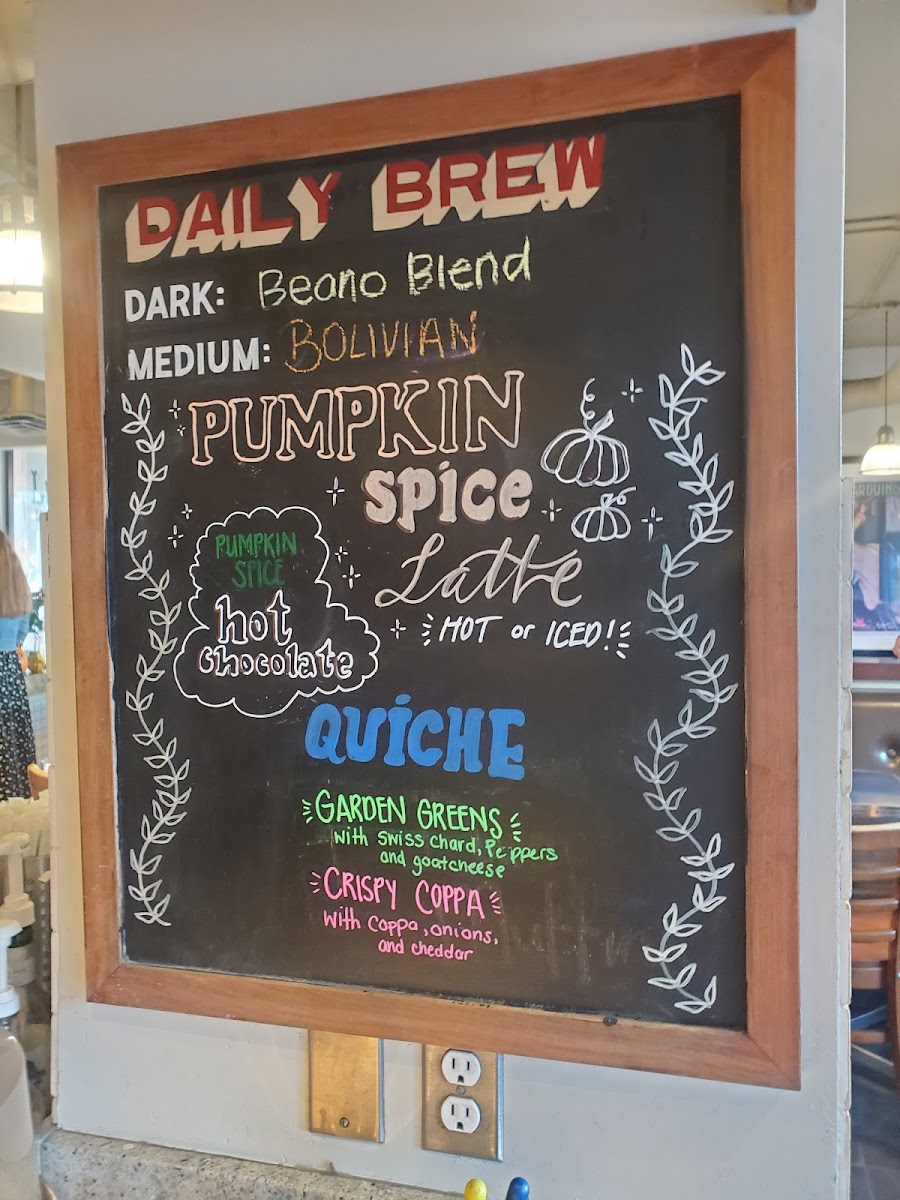 DAILY BREW
DARK: Beano Blend
MEDIUM: BOLIVIAN
PUMPKIN
spice
Latte
HOT or ICED!
PUMPKIN
SPICE
hot
chocolate
QUICHE
GARDEN GREENS
with Swiss chard, Peppers
and goatcheese
CRISPY COPPA
with Coppa, onions,
and cheddar